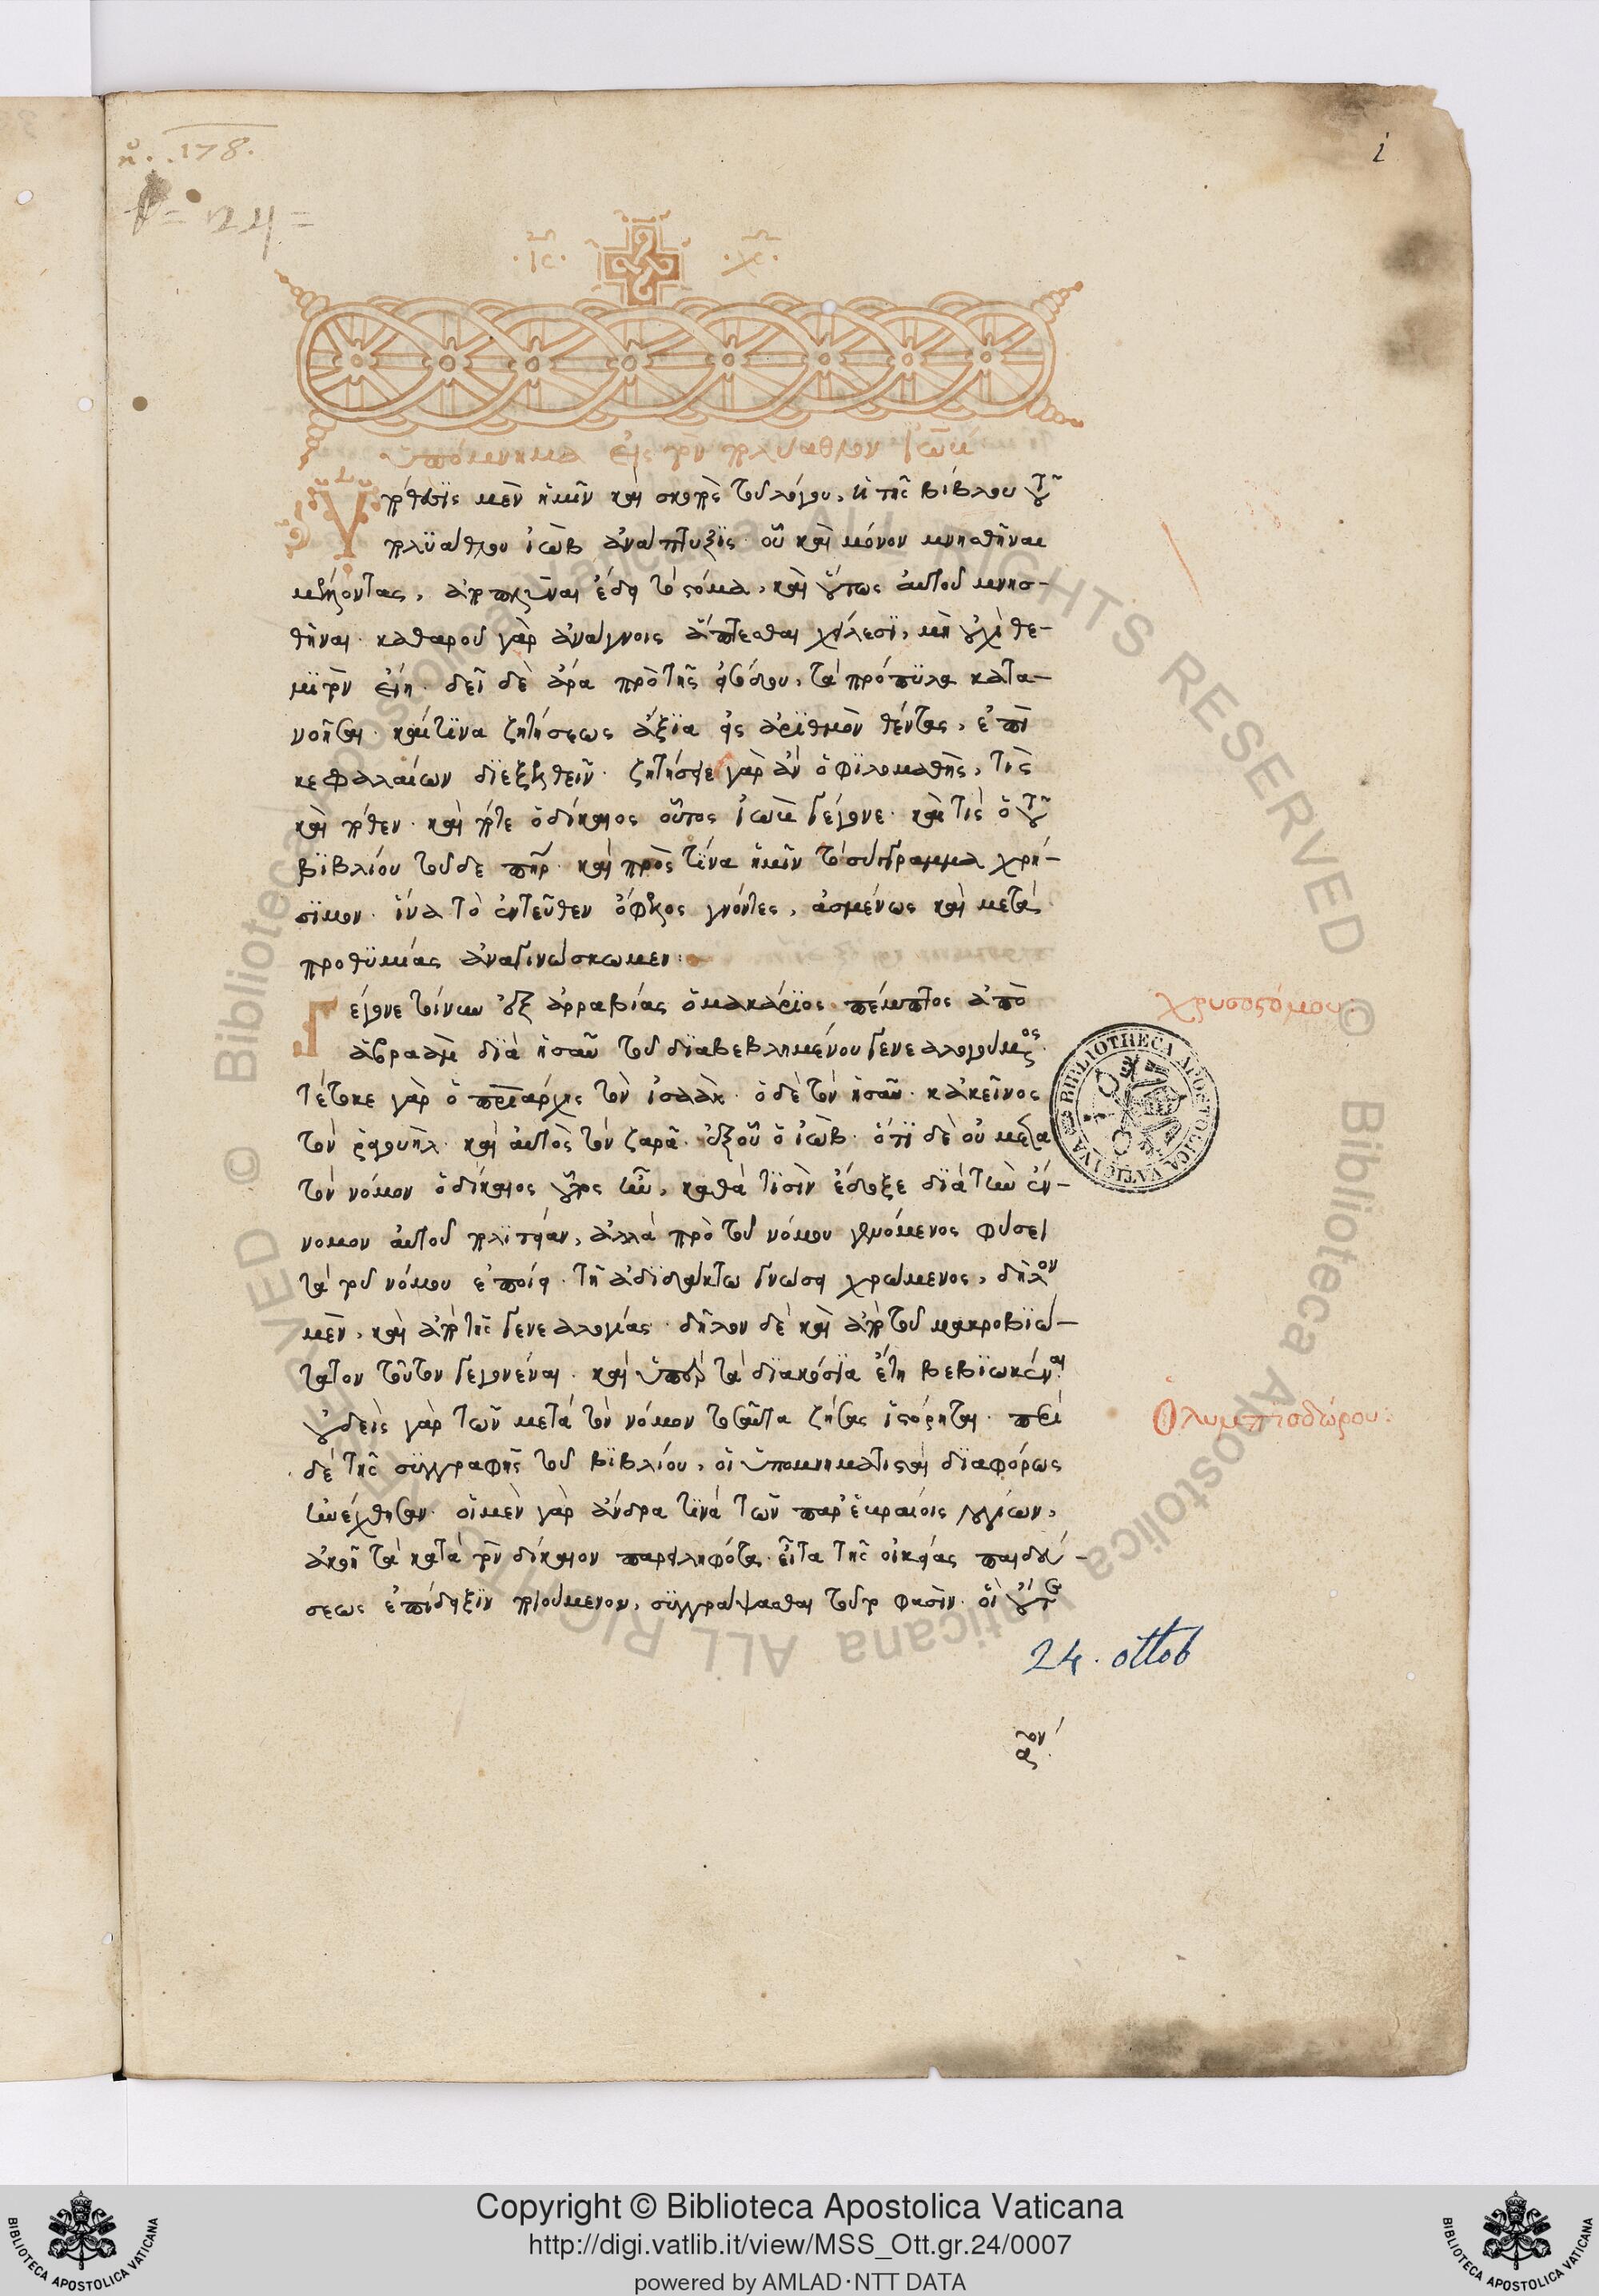 n. 178.
i
24
ΙC ΧC
ὑπόμνημα εἰς τὸν πολύαθλον ἰὼβ
Υπόθεσις μὲν ἡμῖν καὶ σκοπὸς τοῦ λόγου, ἡ τῆς βίβλου τοῦ
πολυάθλου ἰὼβ ἀνάπτυξις· οὗ καὶ μόνον μνησθῆναι
μέλλοντας, ἔδει τὸ στόμα, καὶ οὕτως αὐτοῦ μνησ-
θῆναι· καθαροῦ γὰρ ἀνάγνοις ἅπτεσθαι χείλεσι, μὴ οὐχὶ θε-
μιτὸν εἴη· δεῖ δὲ ἄρα πρὸ τῆς εἰσόδου, τὰ πρόπυλα κατα-
νοῆσαι· καί τινα ζητήσεως ἄξια εἰς ἀριθμὸν θέντας, ἐπὶ
κεφαλαίων διεξελθεῖν· ζητήσειε γὰρ ἂν ὁ φιλομαθὴς, τίς
καὶ πόθεν· καὶ πότε ὁ δίκαιος οὗτος ἰὼβ γέγονε· καὶ τίς ὁ τοῦ
βιβλίου τοῦδε πατήρ· καὶ πρὸς τίνα ἡμῖν τὸ σύγγραμμα χρή-
σιμον· ἵνα τὸ ἐντεῦθεν ὄφελος γνόντες, ἀσμένως καὶ μετὰ
προθυμίας ἀναγινώσκωμεν:
Γέγονε τοίνυν ἐξ ἀρραβίας ὁ μακάριος πέμπτος ἀπὸ
χρυσοστόμου:
ἀβραὰμ διὰ ἠσαῦ τοῦ διαβεβλημένου γενεαλογούμενος·
τέτοκε γὰρ ὁ πατριάρχης τὸν ἰσαάκ· ὁ δὲ τὸν ἠσαῦ· κἀκεῖνος
τὸν ῥαγουήλ· καὶ αὐτὸς τὸν ζαρᾶ· ἐξ οὗ ὁ ἰώβ· ὅτι δὲ οὐ μετὰ
τὸν νόμον ὁ δίκαιος οὗτος ἦν, καθά τισιν ἔδοξε διὰ τὴν ἔν-
νομον αὐτοῦ πολιτείαν, ἀλλὰ πρὸ τοῦ νόμου γενόμενος φύσει
τὰ τοῦ νόμου ἐποίει· τῇ ἀδιδάκτω γνώσει χρώμενος, δῆλον
μὲν, καὶ ἀπὸ τῆς γενεαλογίας· δῆλον δὲ καὶ ἀπὸ τοῦ μακροβιώ-
τατον τοῦτον γεγονέναι· καὶ ὑπὲρ τὰ διακόσια ἔτη βεβιωκέναι
οὐδεὶς γὰρ τῶν μετὰ τὸν νόμον τοσαῦτα ζήσας ἱστόρηται· περὶ
Ὀλυμπιοδώρου:
δὲ τῆς συγγραφῆς τοῦ βιβλίου, οἱ ὑπομνηματισταὶ διαφόρως
ἠνέχθησαν· οἱ μὲν γὰρ ἄνδρα τινὰ τῶν παρ' ἑβραίοις λογίων,
ἀκοῇ τὰ κατὰ τὸν δίκαιον παρειληφότα· εἶτα τῆς οἰκείας παιδεύ-
σεως ἐπίδειξιν ποιούμενον, συγγράψασθαι τοῦτο φασίν· οἱ
24. ottob
BIBLIOTHECA APOSTOLICA VATICANA
© Biblioteca Apostolica Vaticana ALL RIGHTS RESERVED
Copyright © Biblioteca Apostolica Vaticana
http://digi.vatlib.it/view/MSS_Ott.gr.24/0007
powered by AMLAD·NTT DATA
BIBLIOTECA APOSTOLICA VATICANA
BIBLIOTECA APOSTOLICA VATICANA